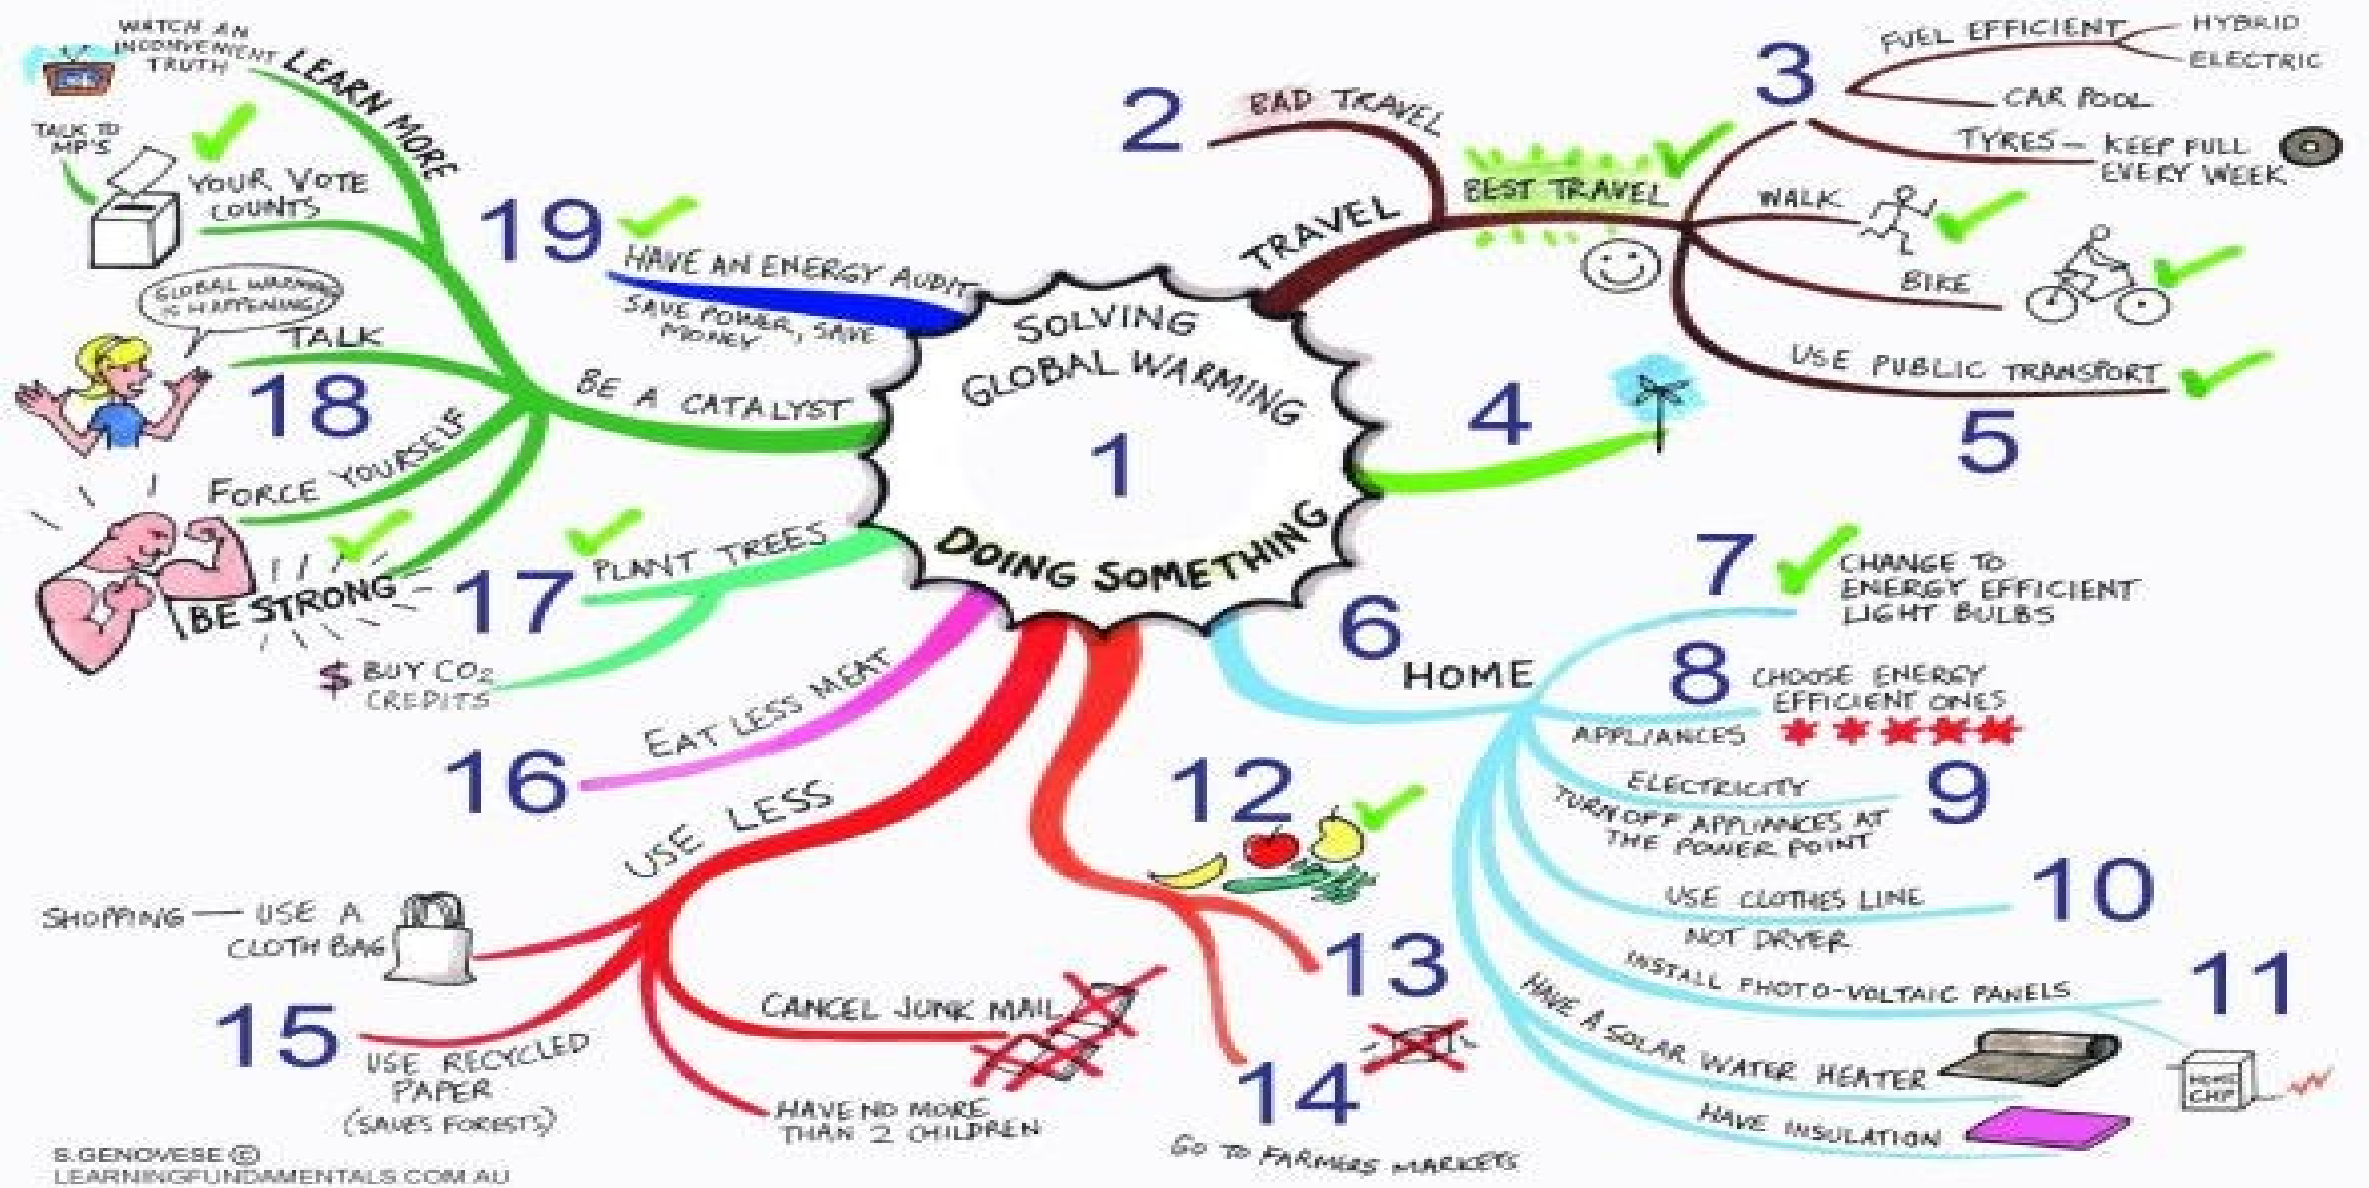 SOLVING
GLOBAL WARMING
1
DOING SOMETHING
TRAVEL
2
BAD TRAVEL
BEST TRAVEL
3
FUEL EFFICIENT
HYBRID
ELECTRIC
CAR POOL
TYRES – KEEP FULL
EVERY WEEK
WALK
BIKE
USE PUBLIC TRANSPORT
4
5
6
HOME
7
CHANGE TO
ENERGY EFFICIENT
LIGHT BULBS
8
CHOOSE ENERGY
EFFICIENT ONES
APPLIANCES
ELECTRICITY
9
TURN OFF APPLIANCES AT
THE POWER POINT
USE CLOTHES LINE
10
NOT DRYER
INSTALL PHOTO-VOLTAIC PANELS
11
HAVE A SOLAR WATER HEATER
HOME
CHP
HAVE INSULATION
12
13
14
GO TO FARMERS MARKETS
USE LESS
SHOPPING — USE A
CLOTH BAG
15
USE RECYCLED
PAPER
(SAVES FORESTS)
CANCEL JUNK MAIL
HAVE NO MORE
THAN 2 CHILDREN
16
EAT LESS MEAT
17
PLANT TREES
$ BUY CO2
CREDITS
BE A CATALYST
LEARN MORE
WATCH AN
INCONVENIENT
TRUTH
TALK TO
MP'S
YOUR VOTE
COUNTS
GLOBAL WARMING
IS HAPPENING!
TALK
18
FORCE YOURSELF
BE STRONG
19
HAVE AN ENERGY AUDIT
SAVE POWER, SAVE
MONEY
S.GENOVESE ©
LEARNINGFUNDAMENTALS.COM.AU